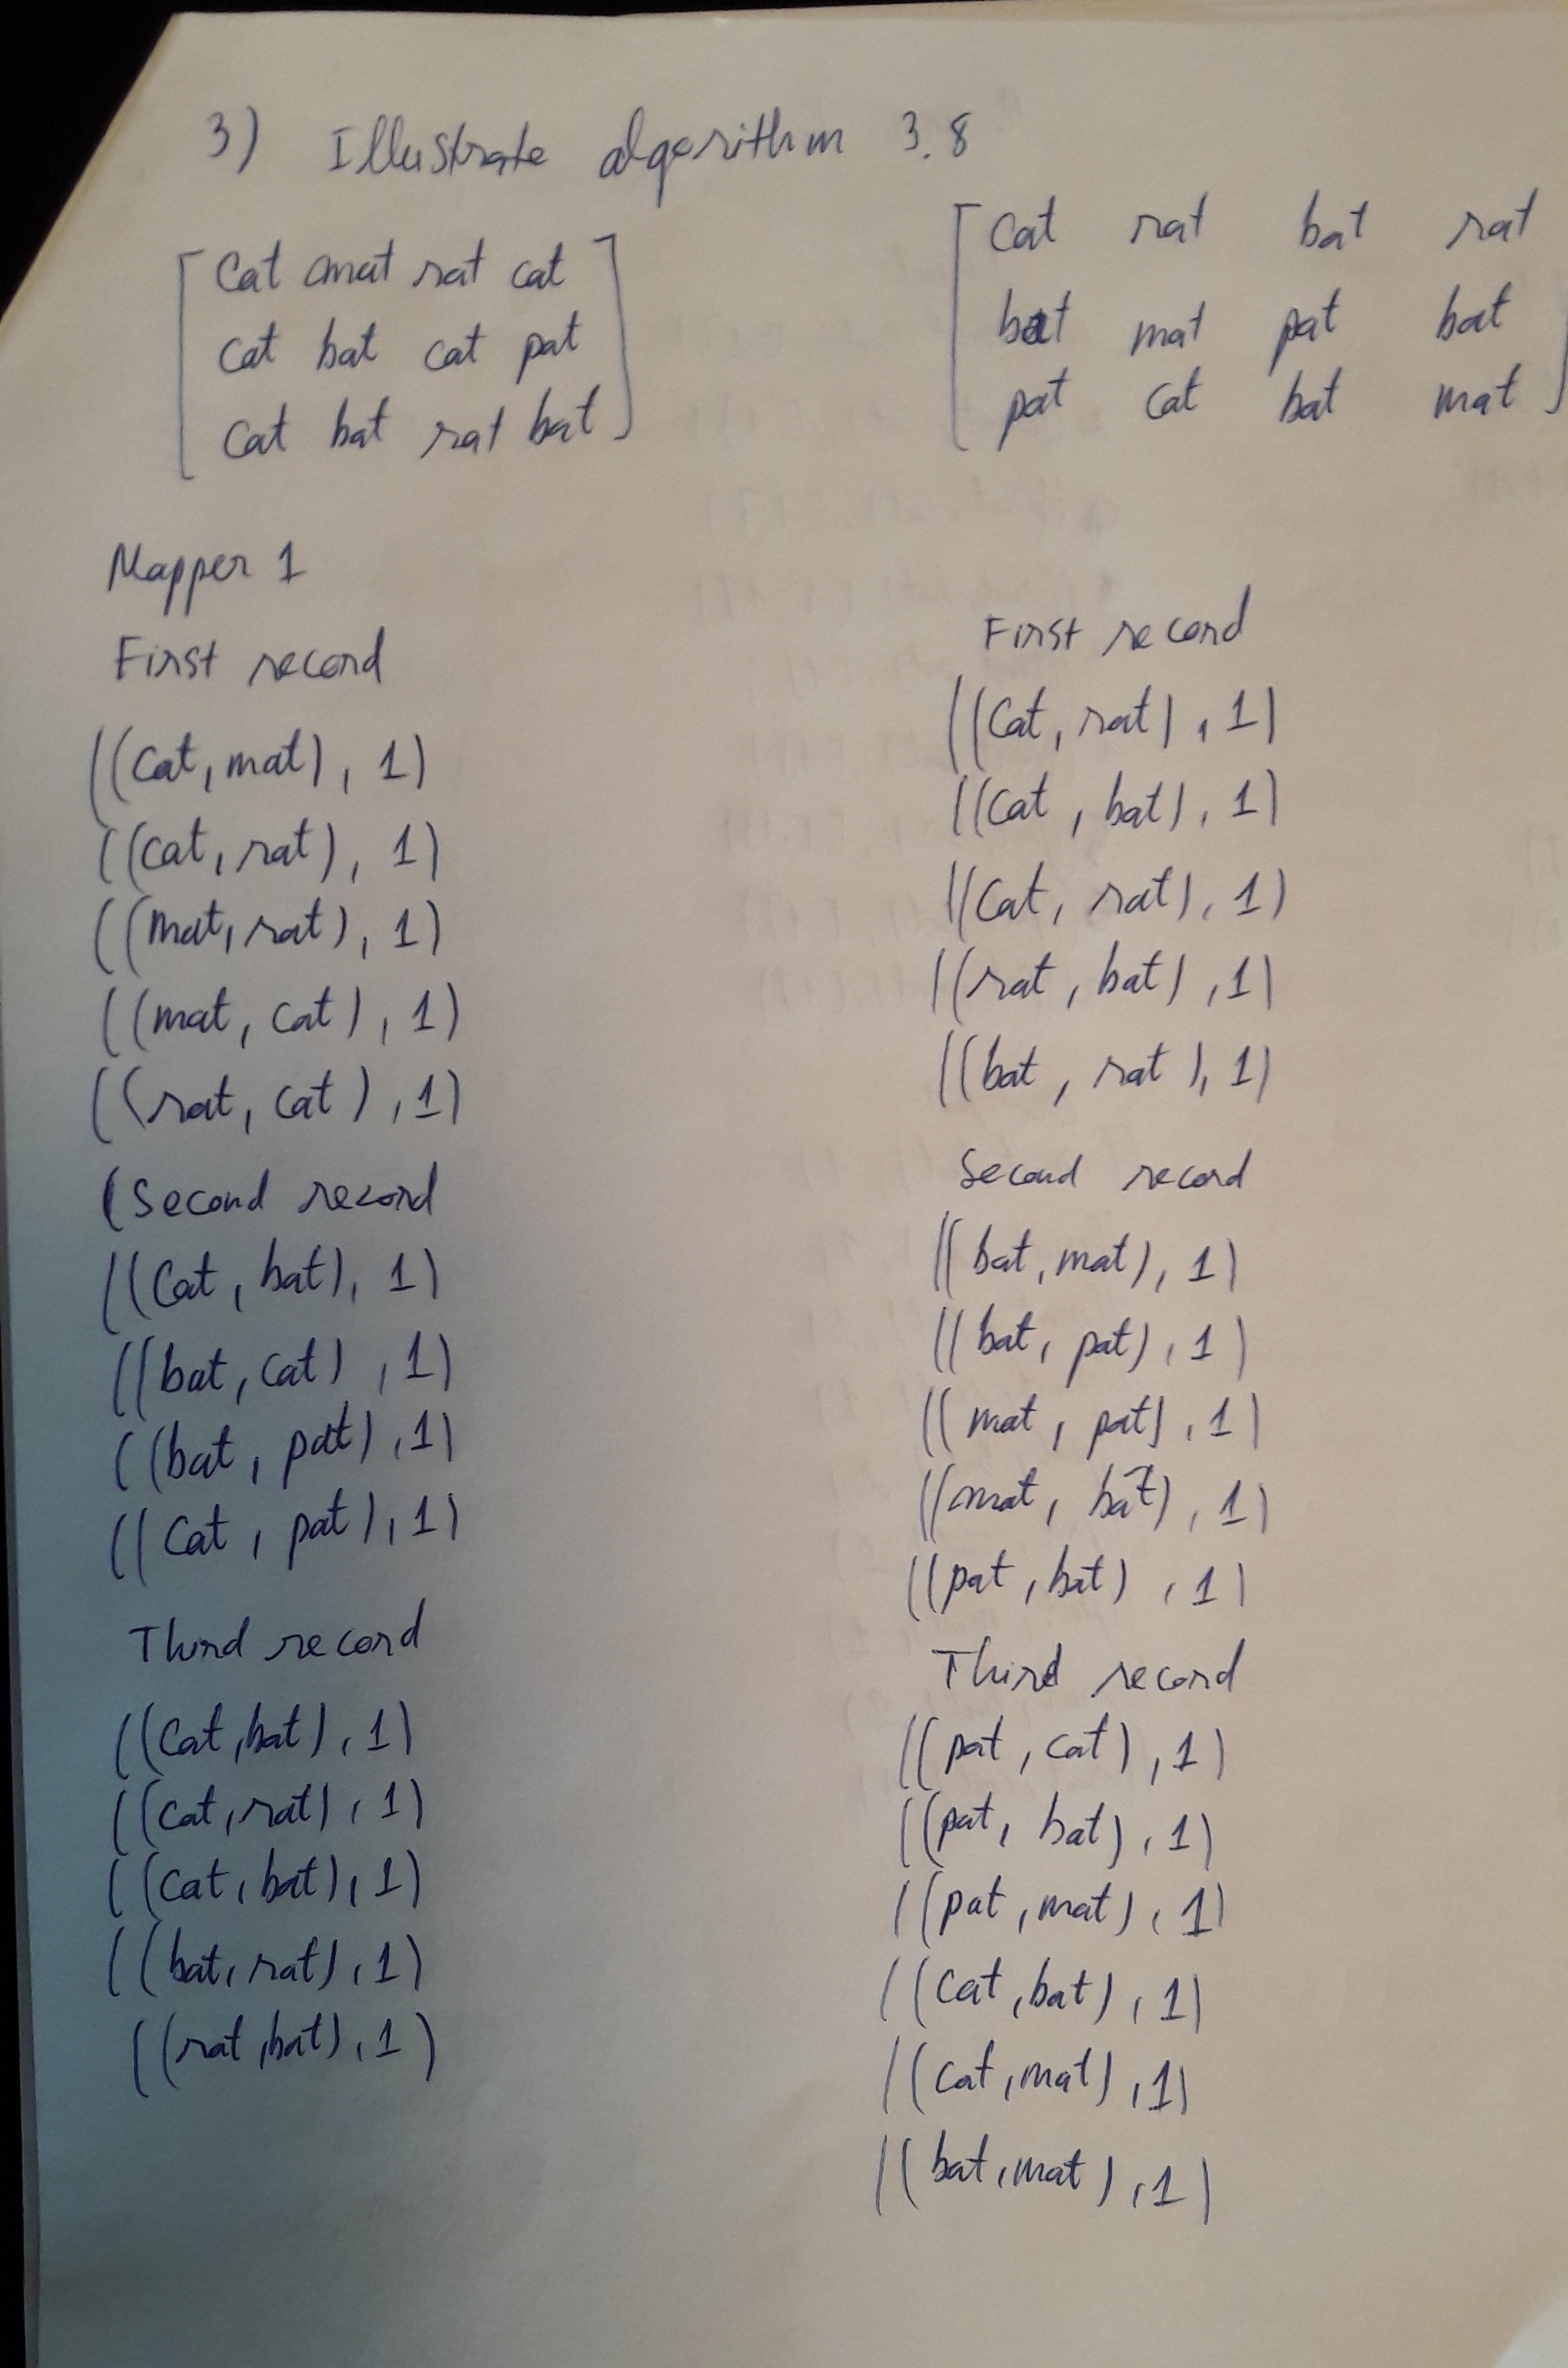 3) Illustrate algorithm 3.8
cat mat rat cat
cat bat cat pat
cat bat rat bat
cat rat bat rat
bat mat pat bat
pat cat bat mat
Mapper 1
First record
((cat, mat), 1)
((cat, rat), 1)
((mat, rat), 1)
((mat, cat), 1)
((rat, cat), 1)
(Second record
((cat, bat), 1)
((bat, cat), 1)
((bat, pat), 1)
((cat, pat), 1)
Third record
((cat, bat), 1)
((cat, rat), 1)
((cat, bat), 1)
((bat, rat), 1)
((rat, bat), 1)
First record
((cat, rat), 1)
((cat, bat), 1)
((cat, rat), 1)
((rat, bat), 1)
((bat, rat), 1)
Second record
((bat, mat), 1)
((bat, pat), 1)
((mat, pat), 1)
((mat, bat), 1)
((pat, bat), 1)
Third record
((pat, cat), 1)
((pat, bat), 1)
((pat, mat), 1)
((cat, bat), 1)
((cat, mat), 1)
((bat, mat), 1)